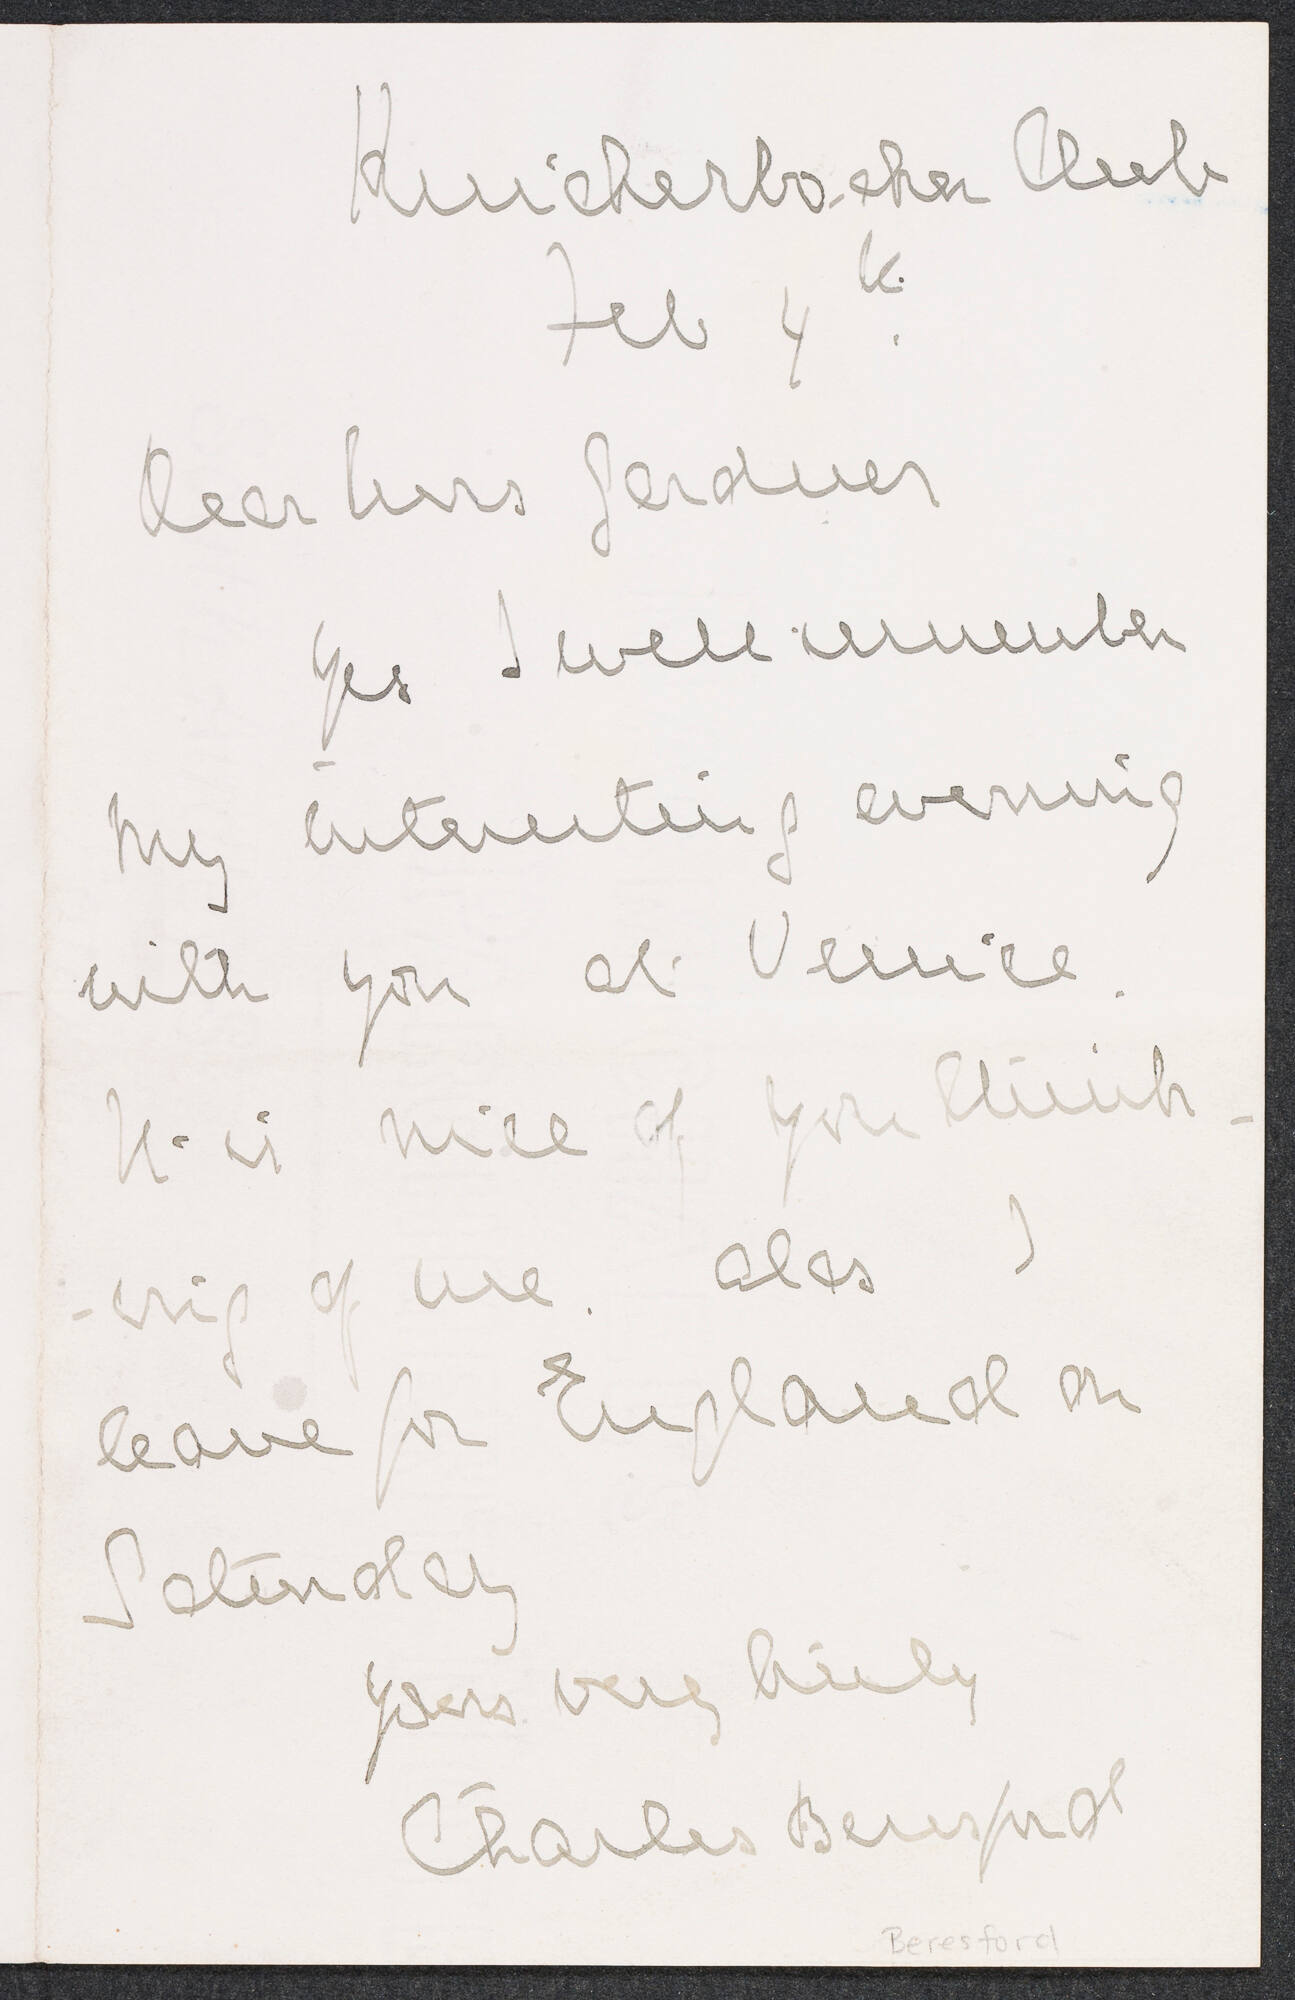 Knickerbo-cker Club
Feb 4th.
Dear Mrs Gardner
Yes I well remember
my interesting evening
with you at Venice.
It is nice of you think-
-ing of me. alas I
leave for England on
Saturday
Yours very truly
Charles Beresford
Beresford